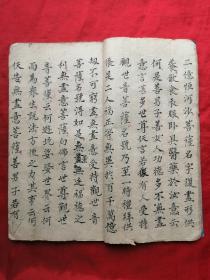 二億恒河沙菩薩名字復盡形供
養飲食衣服卧具醫藥於汝意云
何是善男子善女人功德多不無盡
意言甚多世尊佛言若復有人受持
觀世音菩薩名號乃至一時禮拜供
養是二人福正等無異於百千萬億
劫不可窮盡無盡意受持觀世音
菩薩名號得如是無量無邊福德之
利無盡意菩薩白佛言世尊觀世
音菩薩云何遊此娑婆世界云何
而為眾生說法方便之力其事云何
佛告無盡意菩薩善男子若有